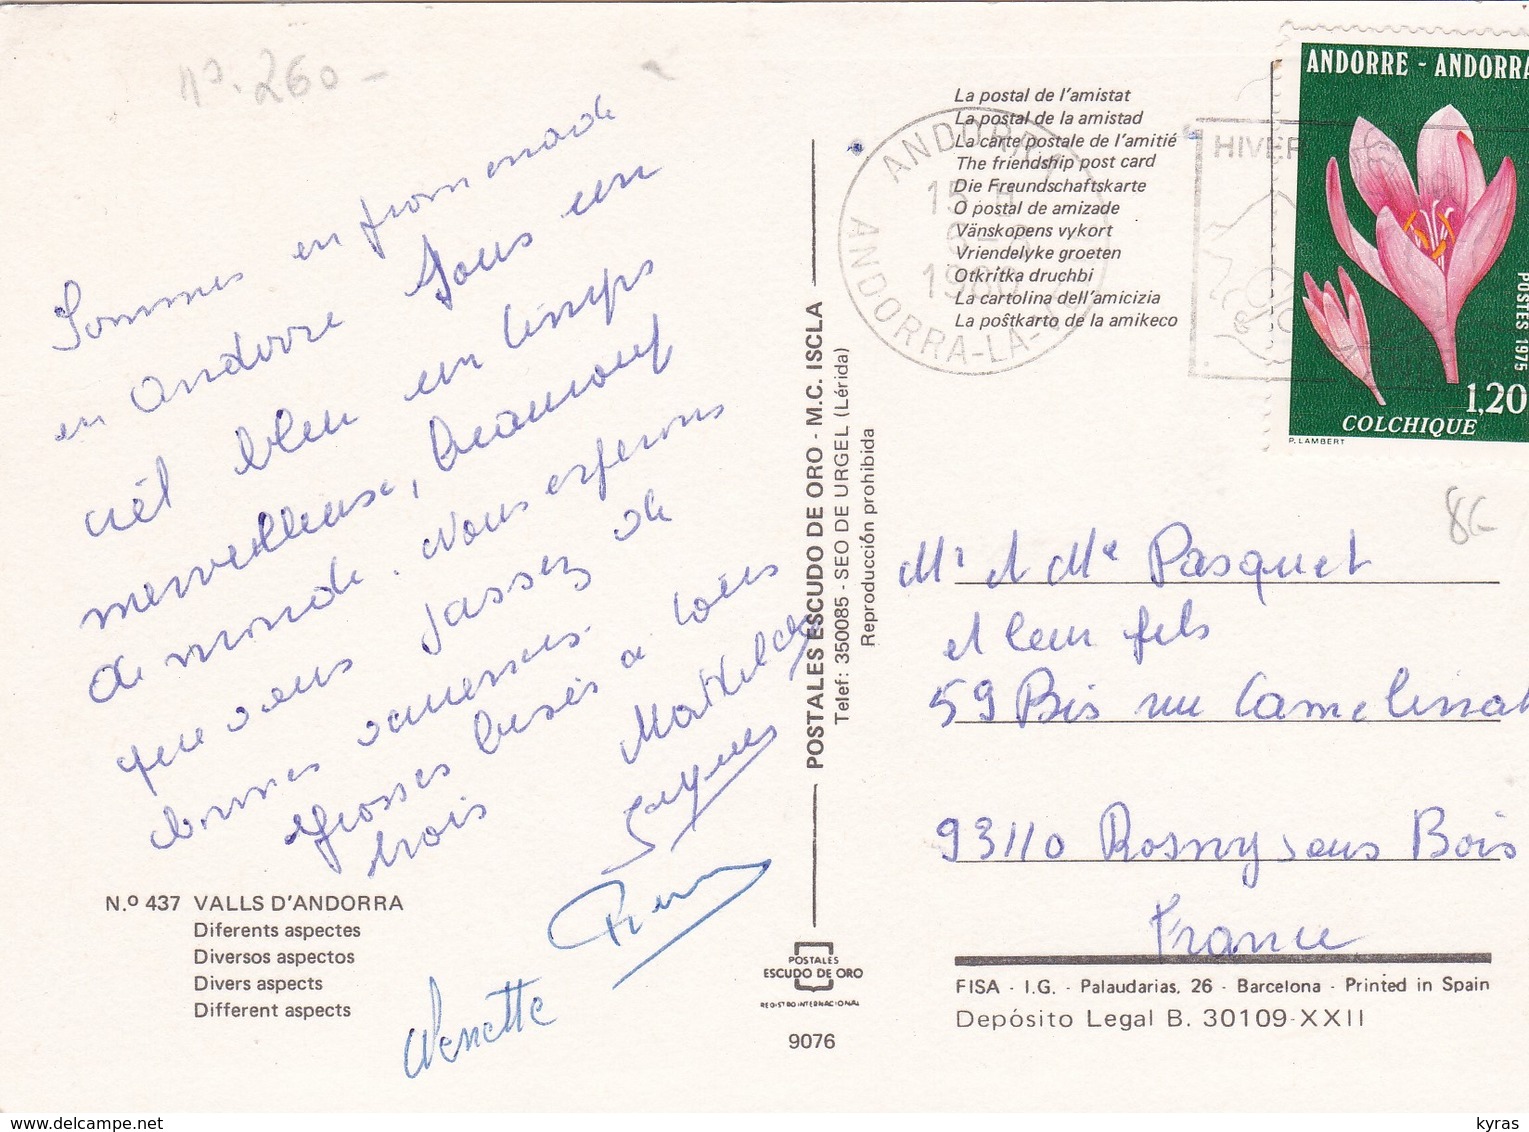 nº. 260 -
Sommes en promenade
en Andorre sous un
ciel bleu un temps
merveilleuse, beaucoup
de monde. Nous esperons
que vous passez de
bonnes vacances.
Grosses bises a tous
trois
Mathilde
Jacques
Nenette
N.º 437 VALLS D'ANDORRA
Diferents aspectes
Diversos aspectos
Divers aspects
Different aspects
POSTALES ESCUDO DE ORO - M.C. ISCLA
Telef: 350085 - SEO DE URGEL (Lérida)
Reproducción prohibida
POSTALES
ESCUDO DE ORO
REGISTRO INTERNACIONAL
9076
La postal de l'amistat
La postal de la amistad
La carte postale de l'amitié
The friendship post card
Die Freundschaftskarte
O postal de amizade
Vänskopens vykort
Vriendelyke groeten
Otkritka druchbi
La cartolina dell'amicizia
La poŝtkarto de la amikeco
ANDORRA
15 H
1980
ANDORRA-LA-V
HIVER
ANDORRE - ANDORRA
POSTES 1975
1,20
COLCHIQUE
P. LAMBERT
8€
Mr et Me Pasquet
et leur fils
59 Bis rue Camelinat
93110 Rosny sous Bois
France
FISA - I.G. - Palaudarias, 26 - Barcelona - Printed in Spain
Depósito Legal B. 30109-XXII
www.delcampe.net
kyras